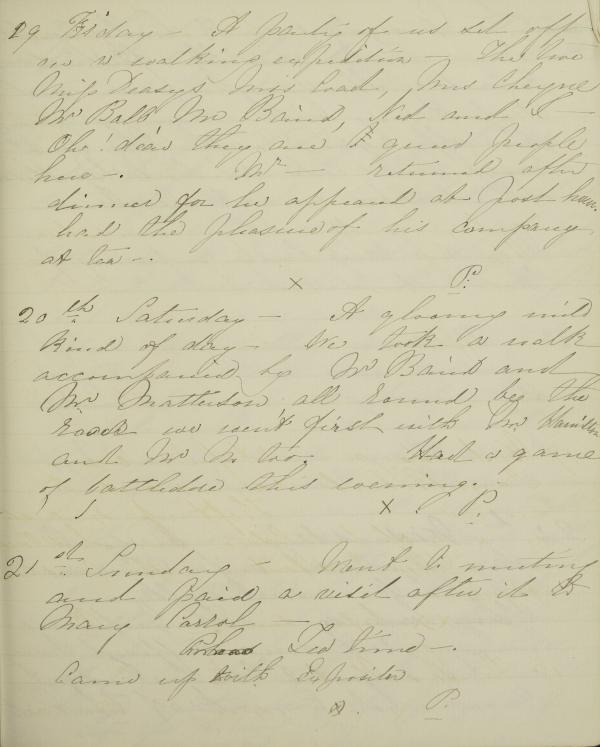 19 Friday - A party of us set off
on a walking expedition - The two
Miss Deasys, Miss Coad, Mrs Cheyne
Mr Ball Mr Baird, Ned and I -
Oh! dear they are queer people
here -. Mr - returned after
dinner for he appeared at post hour.
had the pleasure of his company
at tea -.
x P.
20th Saturday - A gloomy mild
kind of day - We took a walk
accompanied by Mr Baird and
Mr Matterson all round by the
we went first with Mr Hamilton
and Mr M too. Had a game
of battledore this evening.
x. P.
21st Sunday - Went to meeting
and paid a visit after it to
Mary Carrol -
Tea time -.
Came up with Expositor
x. P.